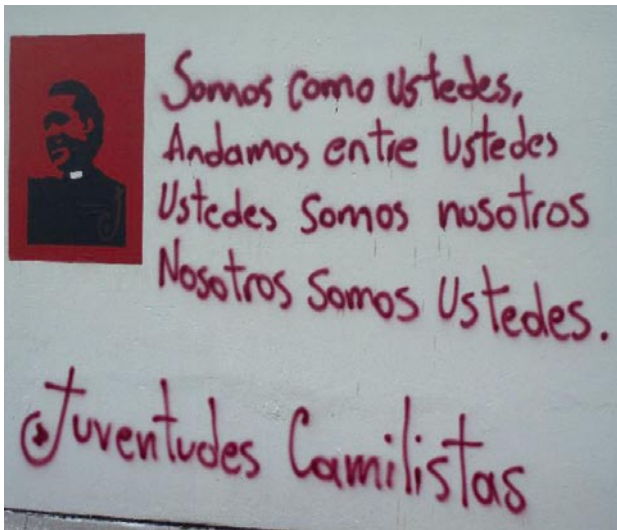 Somos como ustedes,
Andamos entre ustedes
Ustedes somos nosotros
Nosotros somos Ustedes.
Juventudes Camilistas